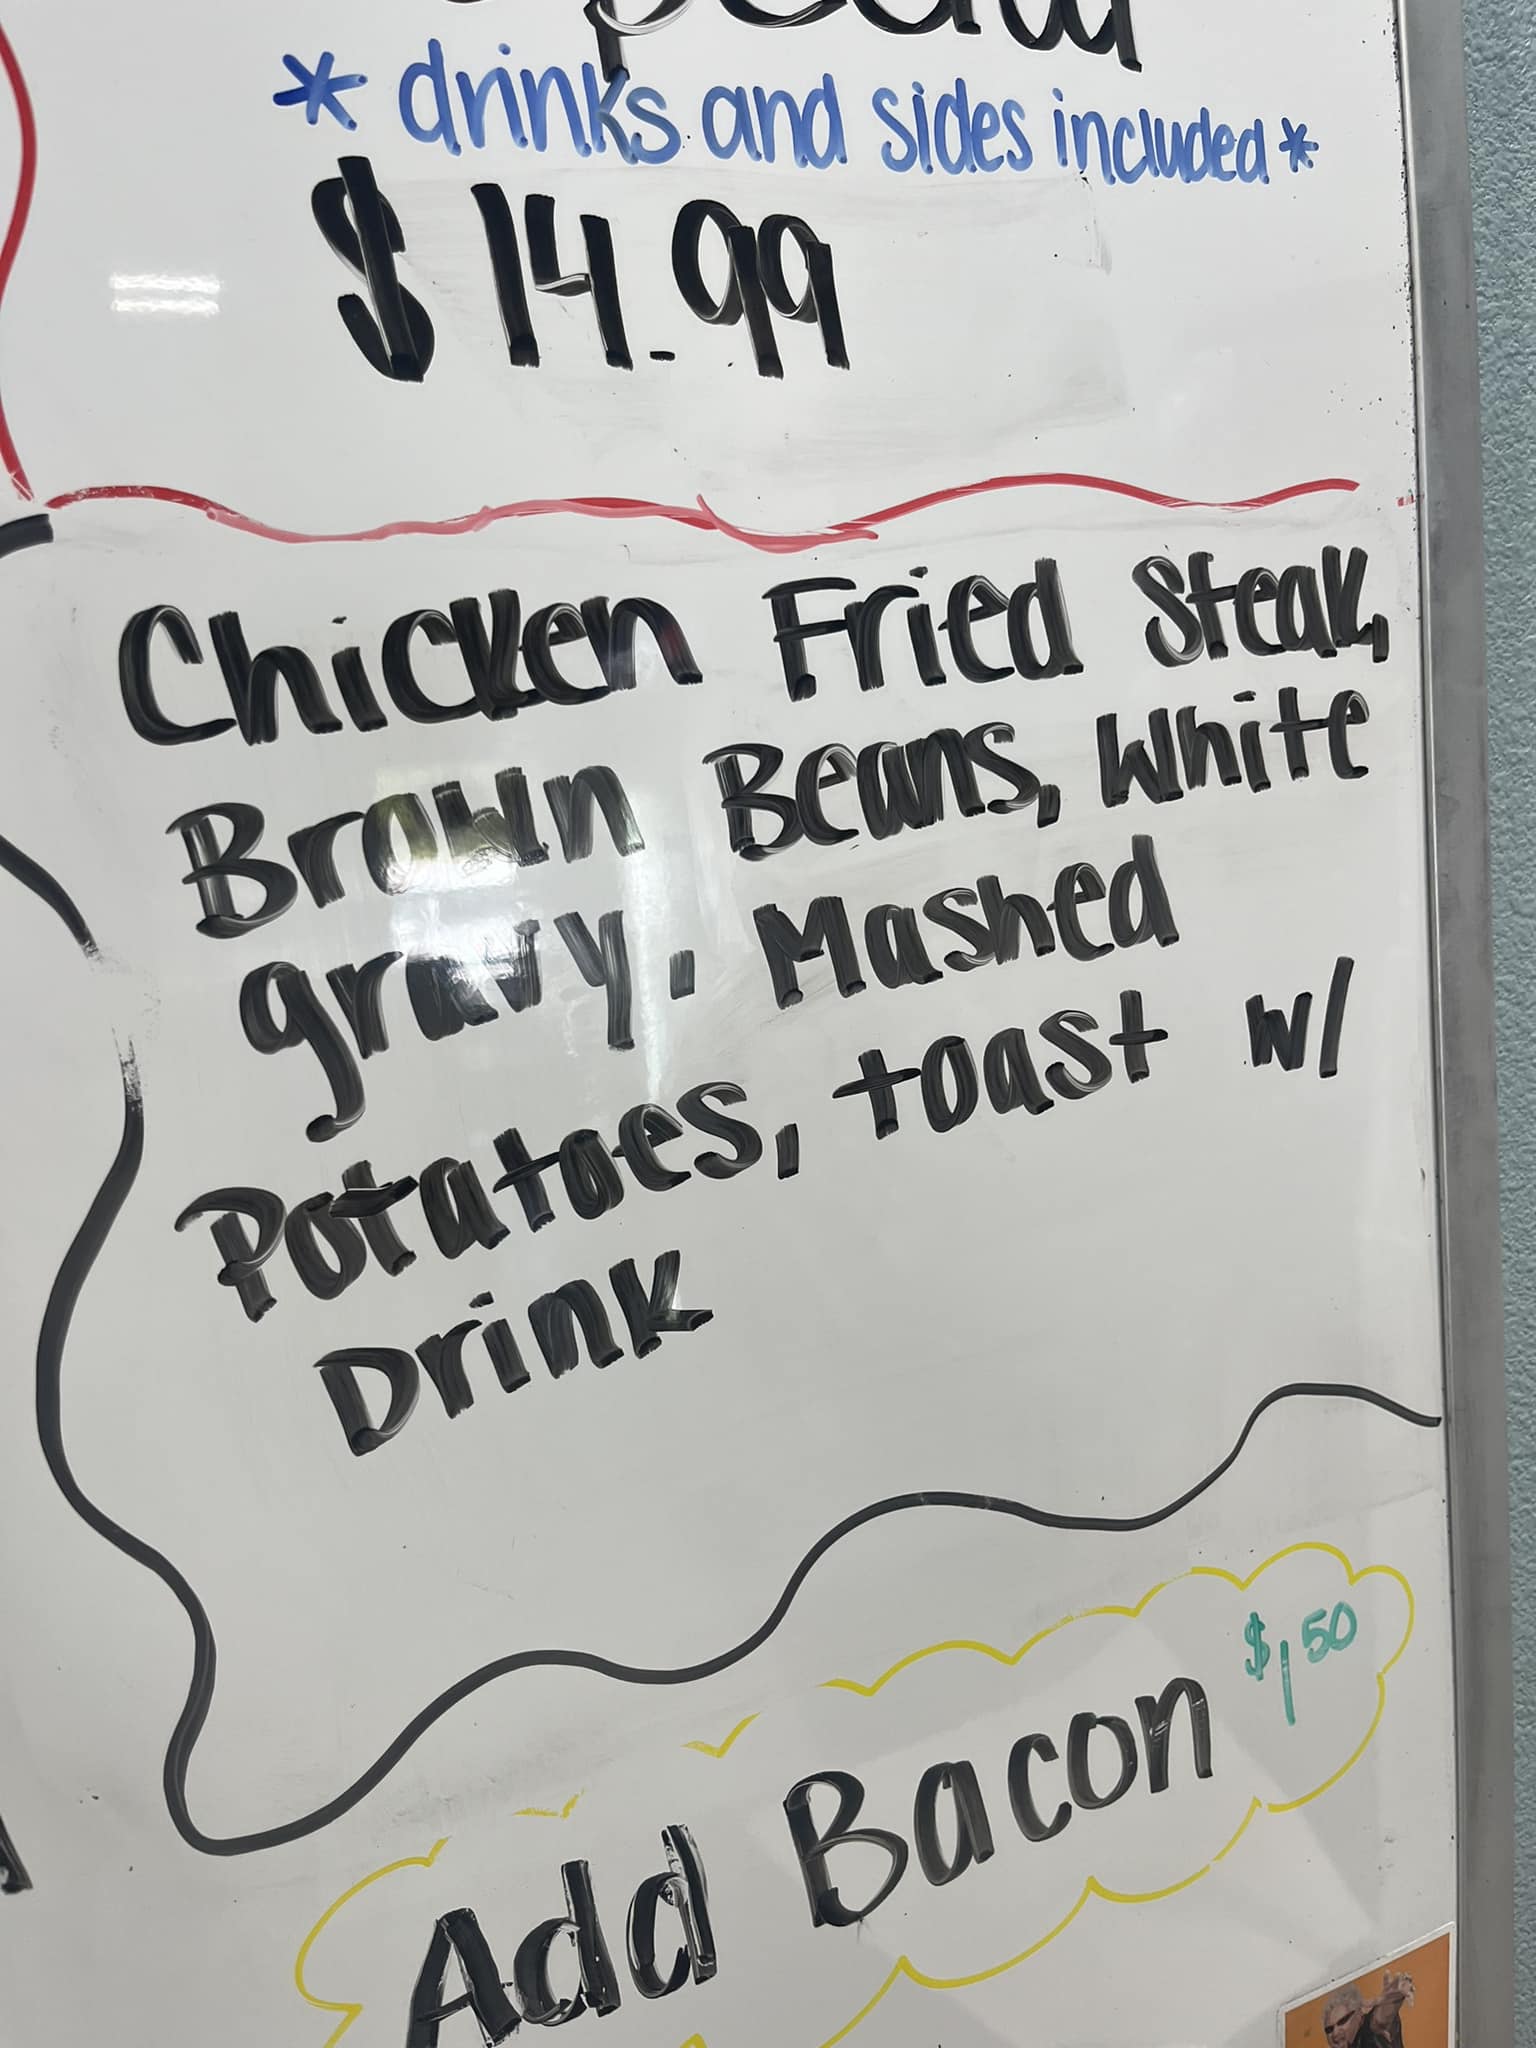 * drinks and sides included *
$14.99
Chicken Fried Steak,
Brown Beans, White
gravy. Mashed
Potatoes, toast w/
Drink
Add Bacon $1.50